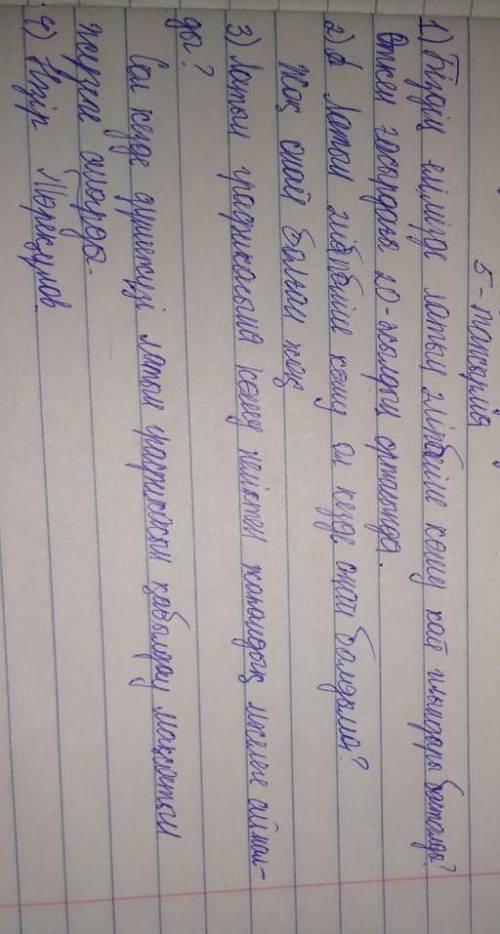 5-тапсырма
1) Біздің елімізде латын әліпбиіне көшу қай жылдары басталды?
Өткен ғасырдағы 20-жылдың ортасында.
2) Латын әліпбиіне көшу ол кезде оңай болдыма?
Жоқ оңай болған жоқ
3) Латын графикасына көшу неліктен жаңалық мәселеге айнал-
ды?
Сол кезде түркітілді латын графикасын қабылдау мақсатын
жүзеге асырды.
4) Нәзір Төреқұлов